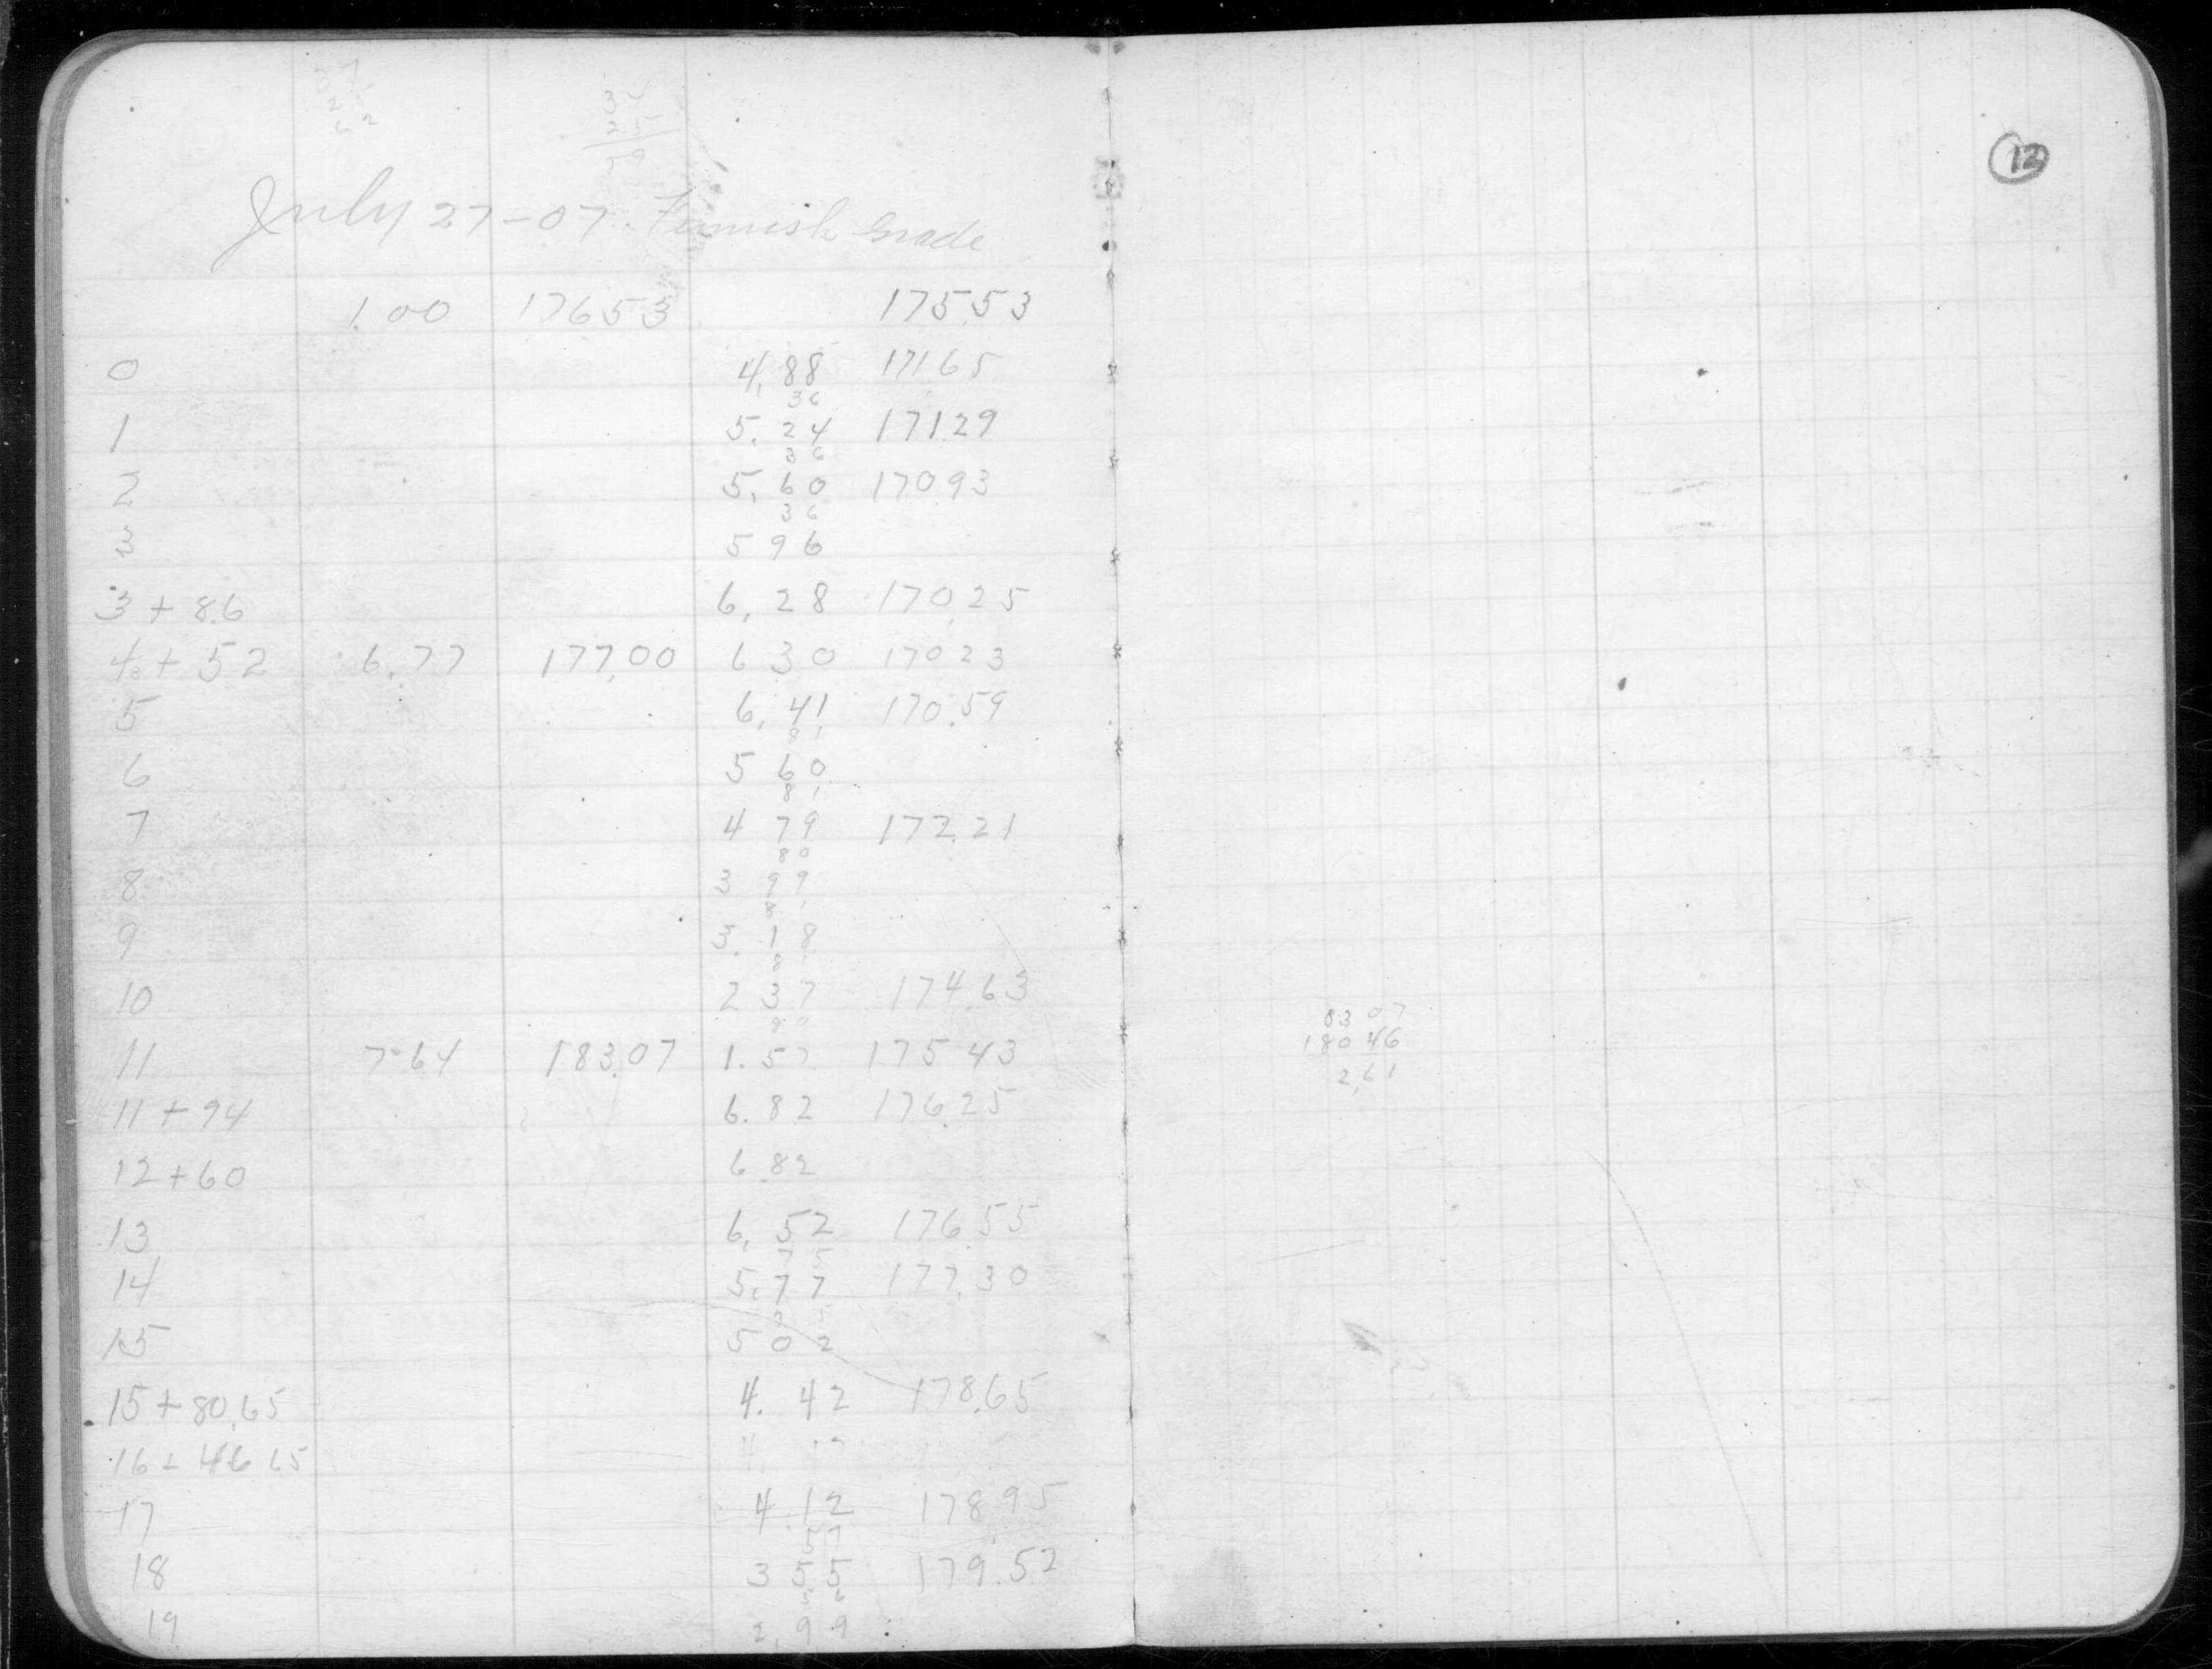 12
July 27-07 Finnish Grade
1.00 176 53 175.53
0 4.88 171 65
36
1 5.24 171.29
36
2 5.60 170 93
36
3 5 96
3 + 86 6.28 170.25
4 + 52 6.77 177.00 6 30 170 23
5 6.41 170.59
81
6 5 60
81
7 4 79 172.21
80
8 3 99
81
9 3.18
81
10 2 37 174.63
80
11 7.64 183.07 1.57 175 43
83 07
180 46
2.61
11 + 94 6.82 176.25
12 + 60 6.82
13 6.52 176.55
75
14 5.77 177.30
15 5 02
15 + 80.65 4.42 178.65
16 + 46 65
17 4.12 178.95
57
18 3 55 179.52
56
19 2.99